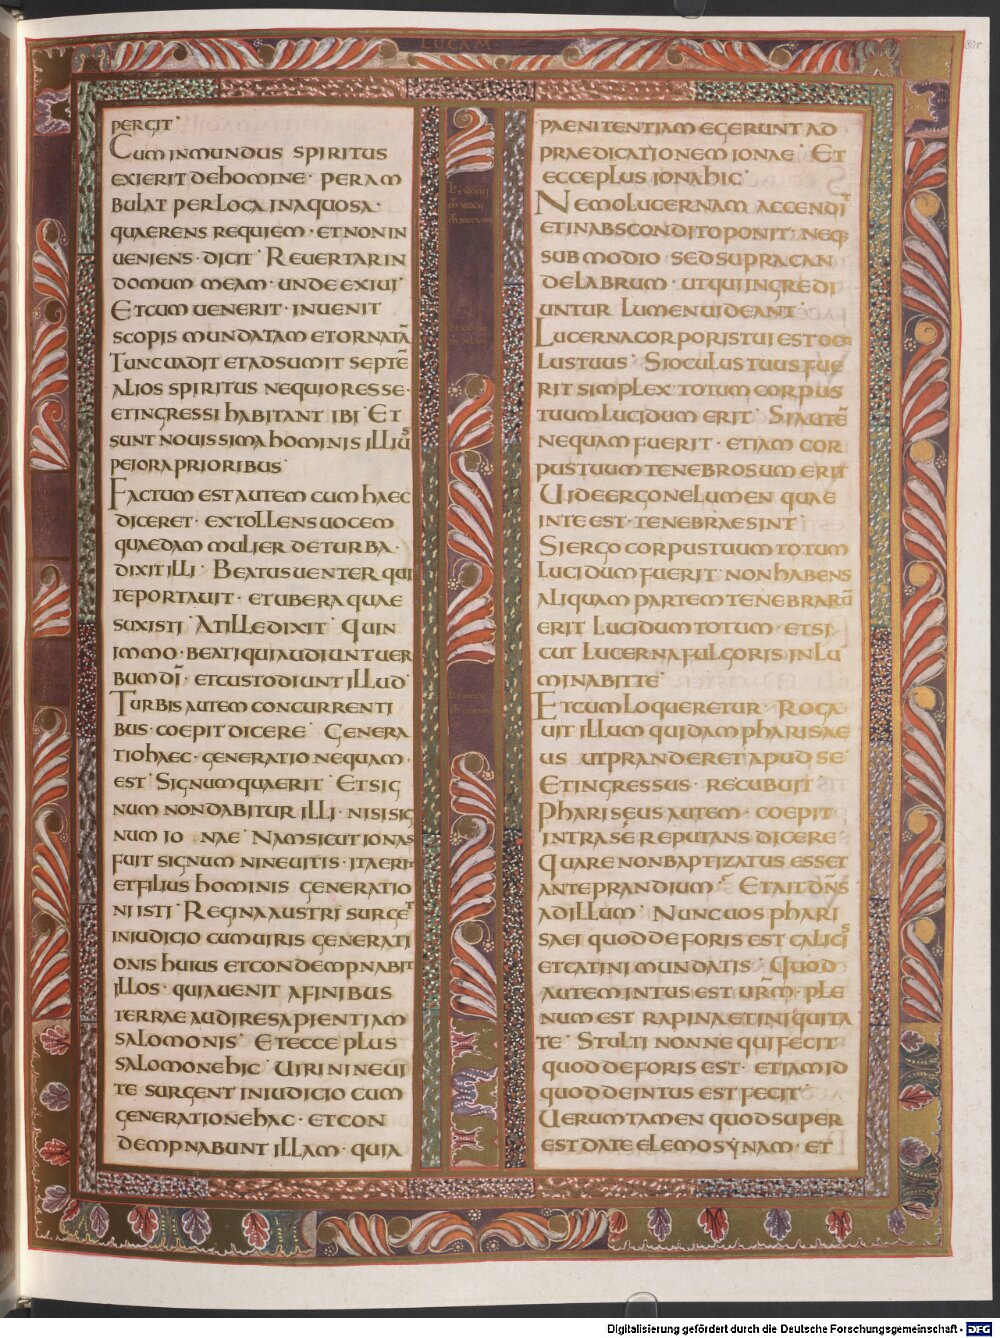 LUCAM
80r
PERGIT·
CUM INMUNDUS SPIRITUS
EXIERIT DEHOMINE· PERAM
BULAT PER LOCA INAQUOSA·
QUAERENS REQUIEM· ET NON IN
UENIENS· DICIT· REUERTAR IN
DOMUM MEAM· UNDE EXIUI·
ET CUM UENERIT· INUENIT
SCOPIS MUNDATAM ET ORNATĀ
TUNC UADIT ET ADSUMIT SEPTĒ
ALIOS SPIRITUS NEQUIORES SE·
ET INGRESSI HABITANT IBI· ET
SUNT NOUISSIMA HOMINIS ILLIUS
PEIORA PRIORIBUS·
FACTUM EST AUTEM CUM HAEC
DICERET· EXTOLLENS UOCEM
QUAEDAM MULIER DE TURBA·
DIXIT ILLI· BEATUS UENTER QUI
TE PORTAUIT· ET UBERA QUAE
SUXISTI· AT ILLE DIXIT· QUIN
IMMO· BEATI QUI AUDIUNT UER
BUM DĪ· ET CUSTODIUNT ILLUD·
TURBIS AUTEM CONCURRENTI
BUS· COEPIT DICERE· GENERA
TIO HAEC· GENERATIO NEQUAM·
EST· SIGNUM QUAERIT· ET SIG
NUM NON DABITUR ILLI· NISI SIG
NUM IO NAE· NAM SICUT IONAS
FUIT SIGNUM NINEUITIS· ITA ERIT
ET FILIUS HOMINIS GENERATIO
NI ISTI· REGINA AUSTRI SURGET
IN IUDICIO CUM UIRIS GENERATI
ONIS HUIUS ET CONDEMPNABIT
ILLOS· QUIA UENIT A FINIBUS
TERRAE AUDIRE SAPIENTIAM
SALOMONIS· ET ECCE PLUS
SALOMONE HIC· UIRI NINEUI
TE SURGENT IN IUDICIO CUM
GENERATIONE HAC· ET CON
DEMPNABUNT ILLAM· QUIA
PAENITENTIAM EGERUNT AD
PRAEDICATIONEM IONAE· ET
ECCE PLUS IONA HIC·
NEMO LUCERNAM ACCENDIT
ET IN ABSCONDITO PONIT· NEQ·
SUB MODIO SED SUPRA CAN
DELABRUM· UT QUI INGREDI
UNTUR LUMEN UIDEANT·
LUCERNA CORPORIS TUI EST OCU
LUS TUUS· SI OCULUS TUUS FUE
RIT SIMPLEX· TOTUM CORPUS
TUUM LUCIDUM ERIT· SI AUTĒ
NEQUAM FUERIT· ETIAM COR
PUS TUUM TENEBROSUM ERIT
UIDE ERGO NE LUMEN QUAE
IN TE EST· TENEBRAE SINT·
SI ERGO CORPUS TUUM TOTUM
LUCIDUM FUERIT· NON HABENS
ALIQUAM PARTEM TENEBRARŪ
ERIT LUCIDUM TOTUM· ET SI
CUT LUCERNA FULGORIS INLU
MINABIT TE·
ET CUM LOQUERETUR· ROGA
UIT ILLUM QUIDAM PHARISAE
US UT PRANDERET APUD SE·
ET INGRESSUS· RECUBUIT·
PHARISEUS AUTEM· COEPIT
INTRA SE REPUTANS DICERE·
QUARE NON BAPTIZATUS ESSET
ANTE PRANDIUM· ET AIT DN̄S
AD ILLUM· NUNC UOS PHARI
SAEI QUOD DE FORIS EST CALICIS
ET CATINI MUNDATIS· QUOD
AUTEM INTUS EST UR̄M· PLE
NUM EST RAPINA ET INIQUITA
TE· STULTI NONNE QUI FECIT
QUOD DE FORIS EST· ETIAM ID
QUOD DE INTUS EST FECIT·
UERUM TAMEN QUOD SUPER
EST DATE ELEMOSYNAM· ET
Digitalisierung gefördert durch die Deutsche Forschungsgemeinschaft - DFG